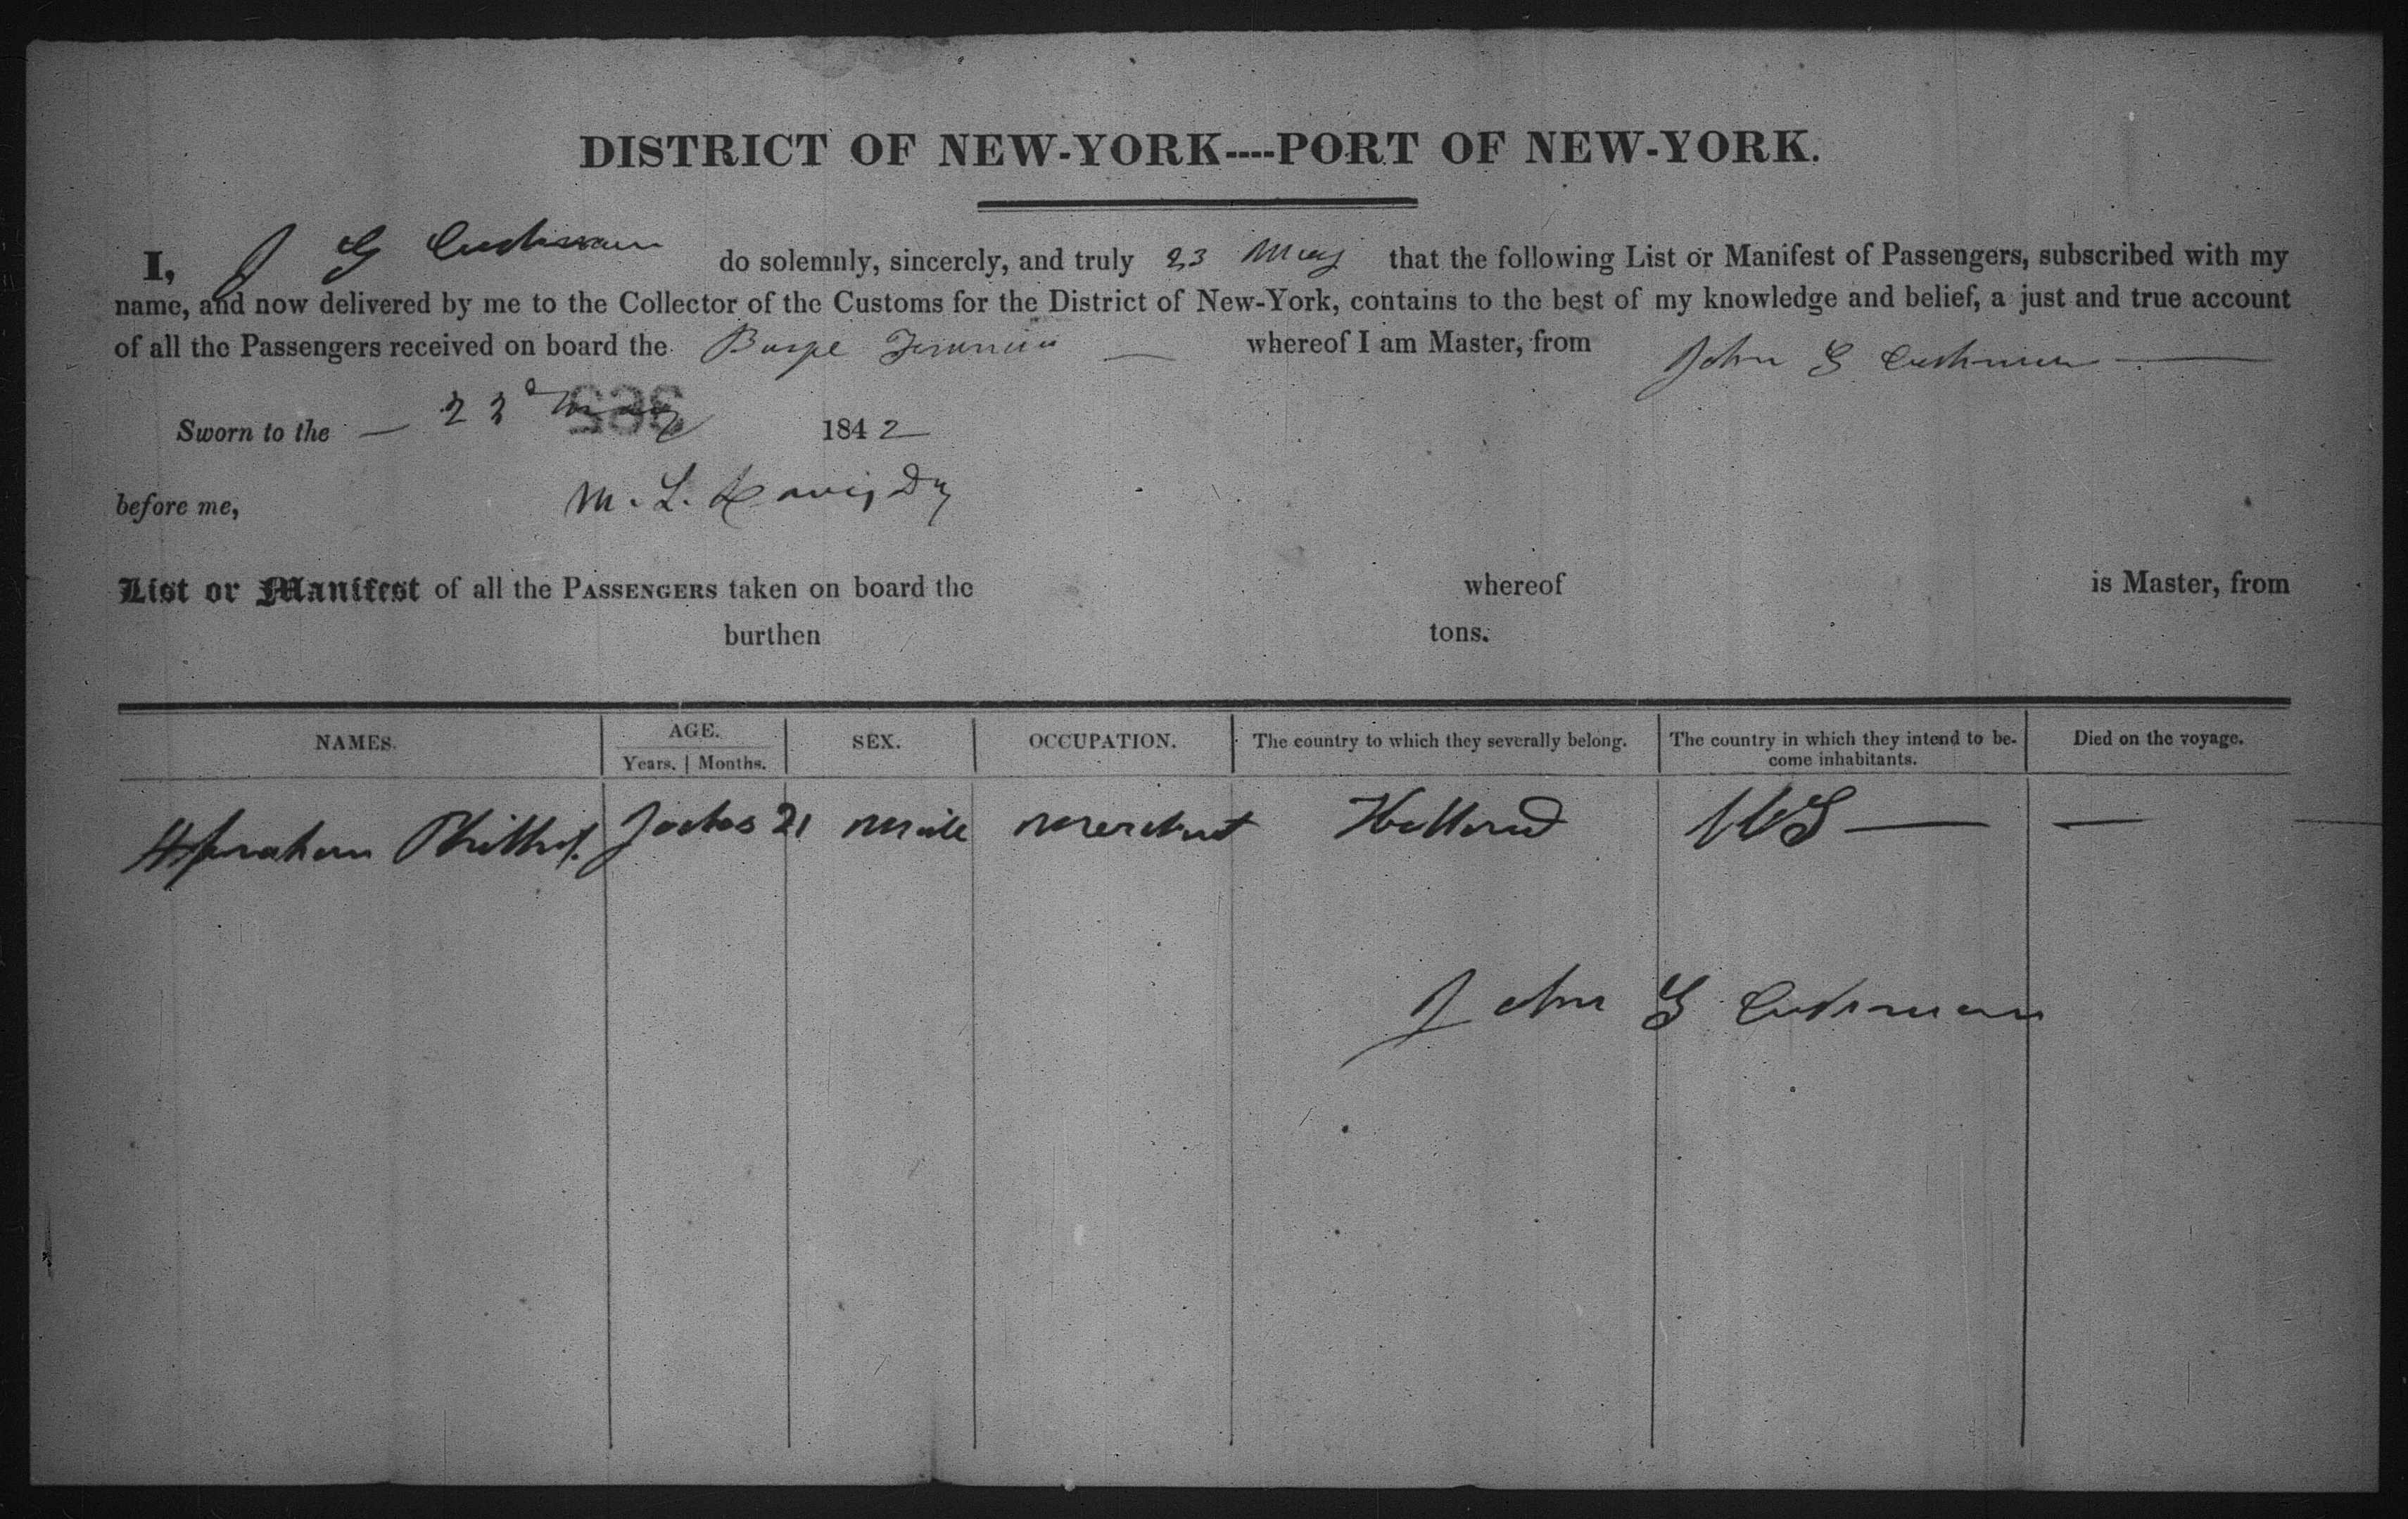 DISTRICT OF NEW-YORK----PORT OF NEW-YORK.
I, J G Cushman do solemnly, sincerely, and truly 23 May that the following List or Manifest of Passengers, subscribed with my
name, and now delivered by me to the Collector of the Customs for the District of New-York, contains to the best of my knowledge and belief, a just and true account
of all the Passengers received on board the whereof I am Master, from John G Cushman
Sworn to the 23d May 1842
before me, M. L. Davis, Dy
List or Manifest of all the PASSENGERS taken on board the whereof is Master, from
burthen tons.
NAMES. AGE. SEX. OCCUPATION. The country to which they severally belong. The country in which they intend to be- Died on the voyage.
Years. | Months. come inhabitants.
Abraham 21 male merchant Holland US —
John G Cushman